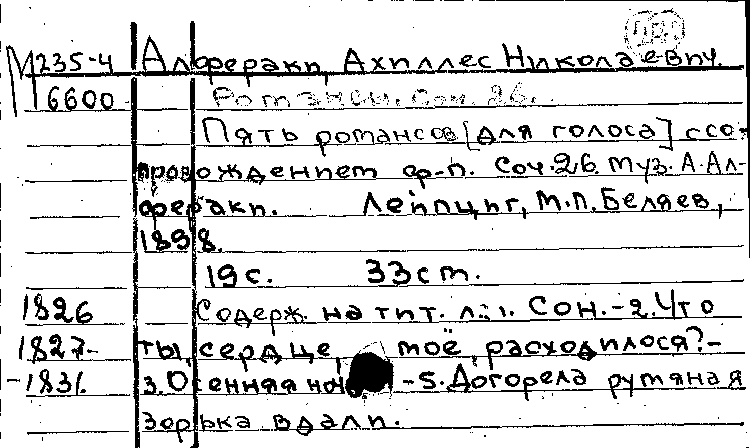 М235-4 Алфераки, Ахиллес Николаевич.
6600 Романсы. Соч. 26.
Пять романсов [для голоса] с со-
провождением ф-п. Соч. 26. Муз. А. Ал-
фераки. Лейпциг, М.П. Беляев,
1898.
19 с. 33 см.
1826 Содерж. на тит. л.: 1. Сон. - 2. Что
1827- ты, сердце, моё, расходилося? -
-1831. 3. Осенняя - 5. Догорела румяная
зорька вдали.